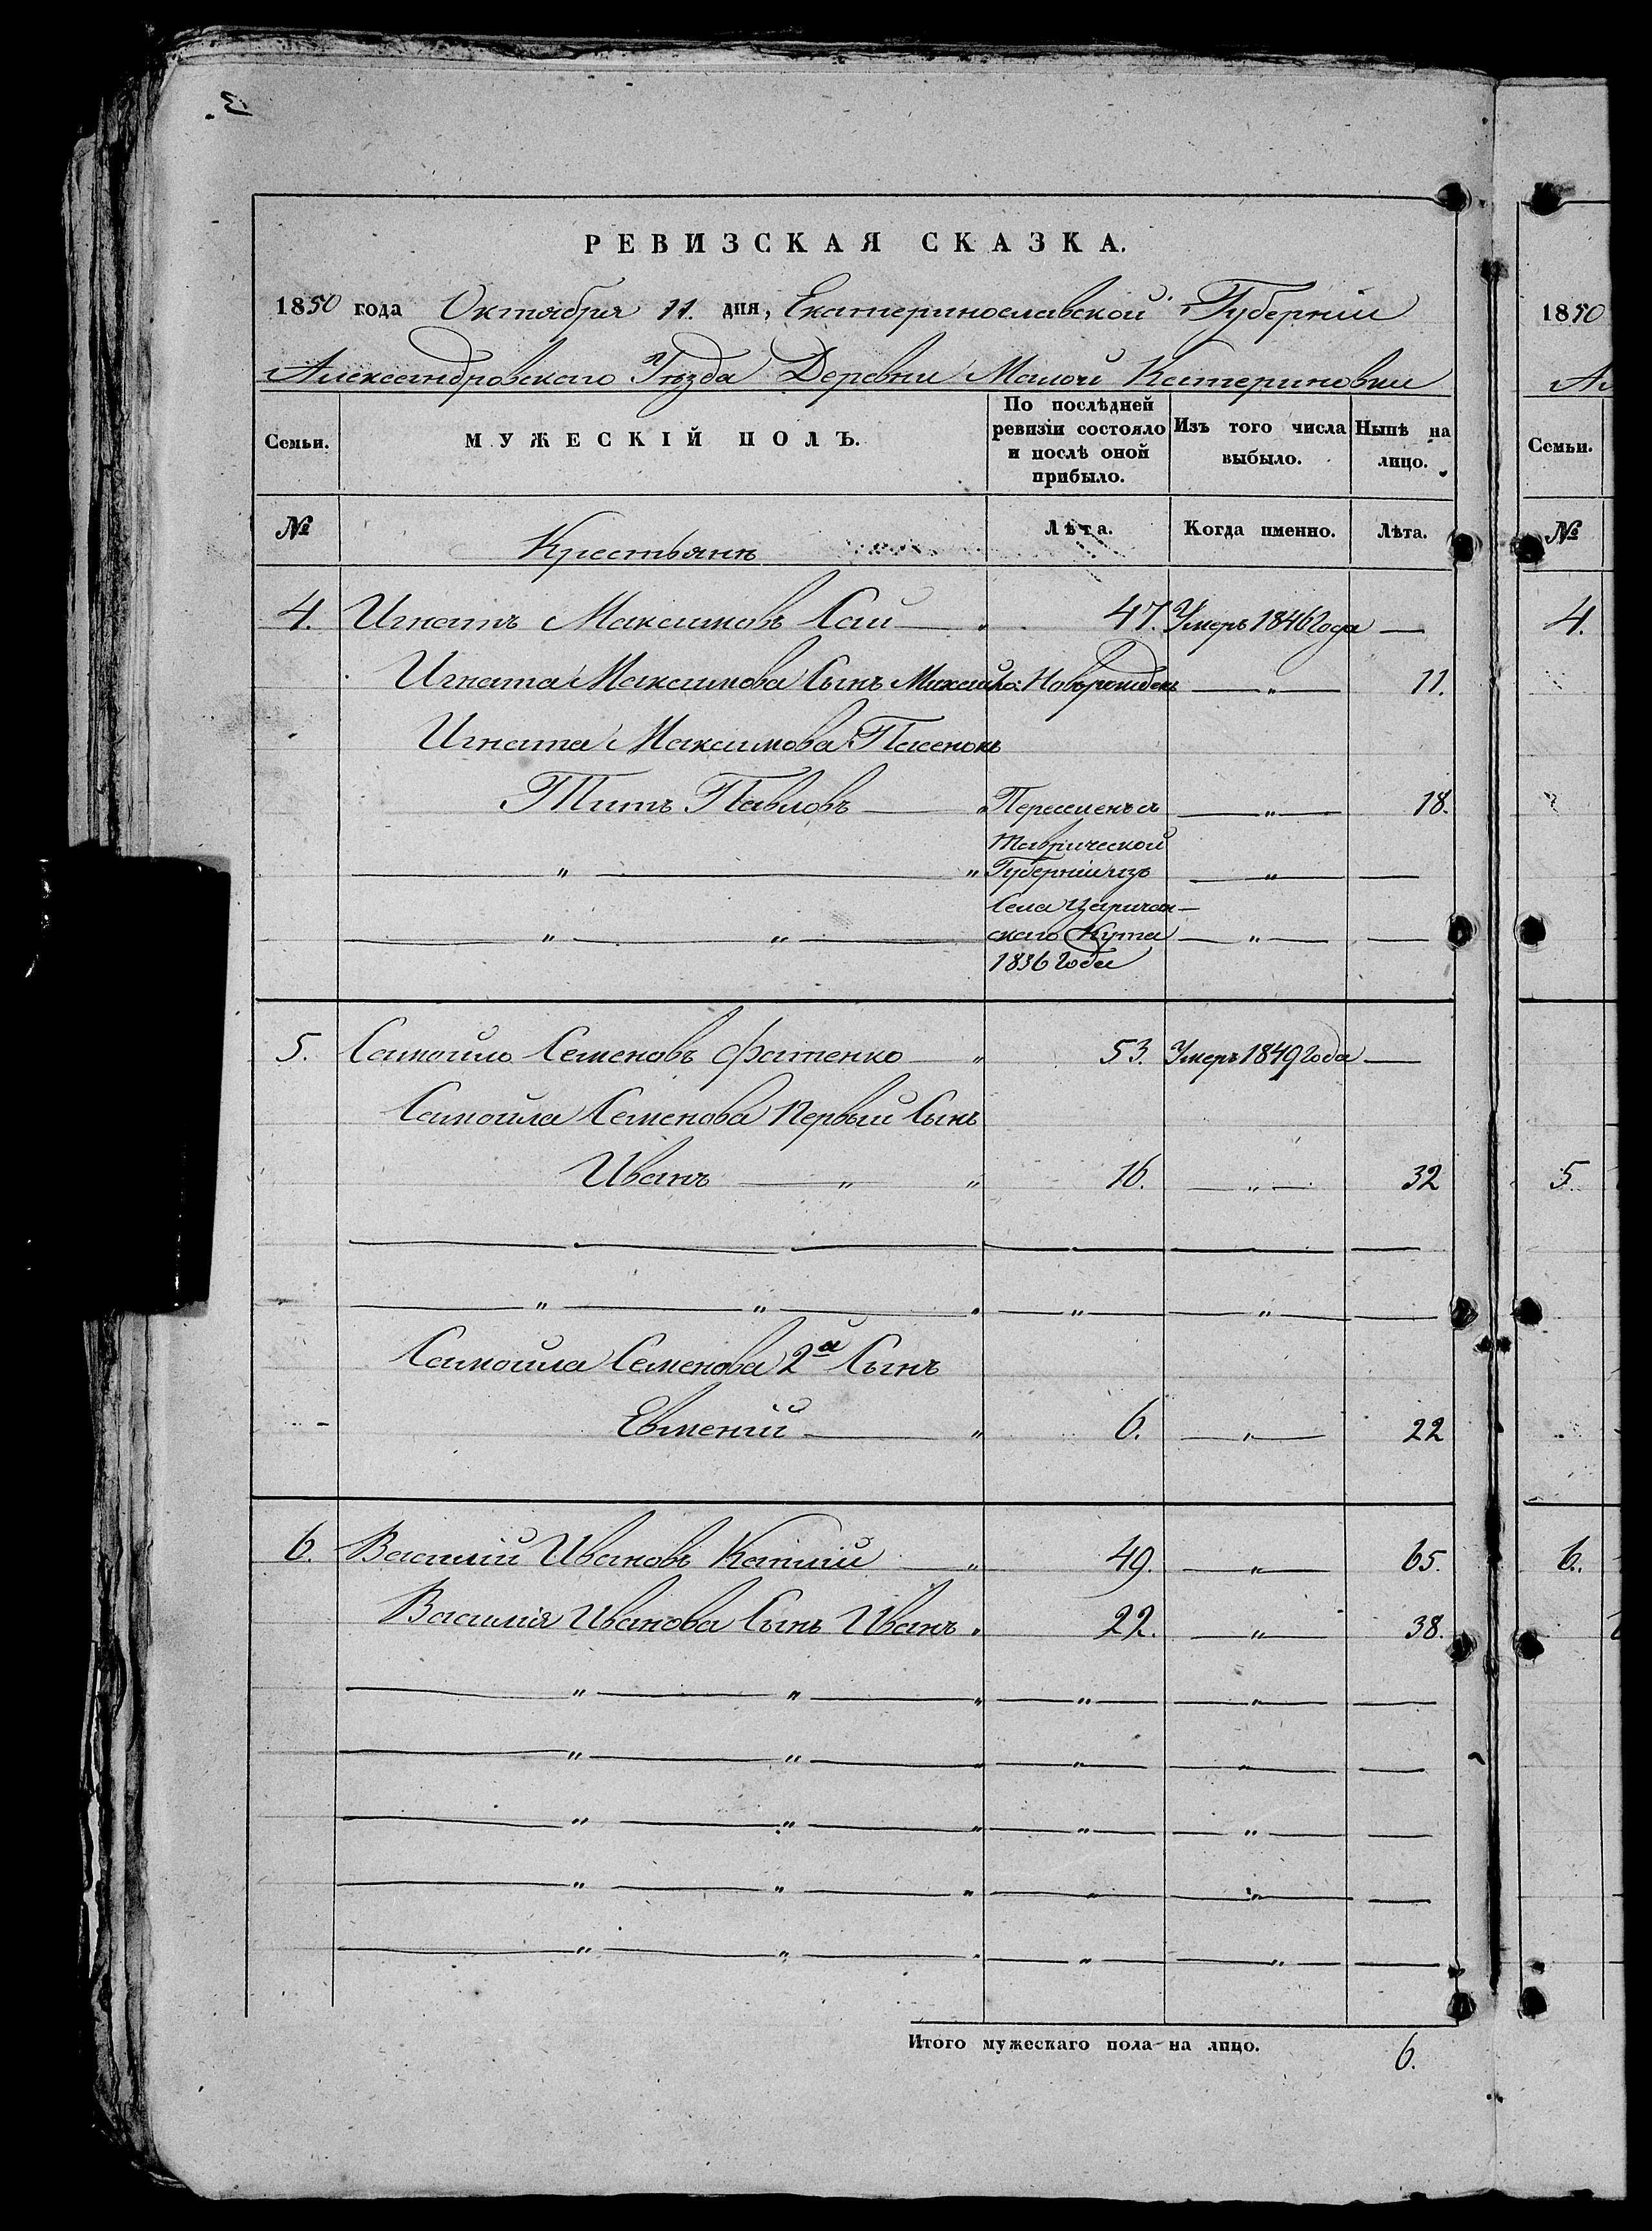 3.
РЕВИЗСКАЯ СКАЗКА.
1850 года Октября 11. дня, Екатеринославской Губерніи
Александровскаго Уѣзда Деревни Малой Катериновки
Семьи.
МУЖЕСКІЙ ПОЛЪ.
По послѣдней ревизіи состояло и послѣ оной прибыло.
Изъ того числа выбыло.
Нынѣ на лицо.
№
Крестьянъ
Лѣта.
Когда именно.
Лѣта.
4. Игнатъ Максимовъ Сай " 47. Умеръ 1846 года —
Игната Максимова Сынъ Михайло: Новорожденъ — " — 11.
Игната Максимова Пасенокъ
Титъ Павловъ — " Переселенъ съ — " — 18.
Таврической
— " — " Губерніи изъ — " — —
Села Царичан—
— " — " — скаго Кута — " — —
1836 года
5. Самойло Семеновъ Фатенко — " 53. Умеръ 1849 года —
Самойла Семенова Первый Сынъ
Иванъ — " " 16. — " — 32
— " — " — " — " — " — —
Самойла Семенова 2й Сынъ
Евменій — " 6. — " — 22
6. Василій Ивановъ Капшій — " 49. — " — 65.
Василія Иванова Сынъ Иванъ " 22. — " — 38.
— " — " — " — " — " — —
— " — " — " — " — " — —
— " — " — " — " — " — —
— " — " — " — " — " — —
— " — " — " — " — " — —
Итого мужескаго пола на лицо. 6.
1850
Семьи.
№
4.
5
6.